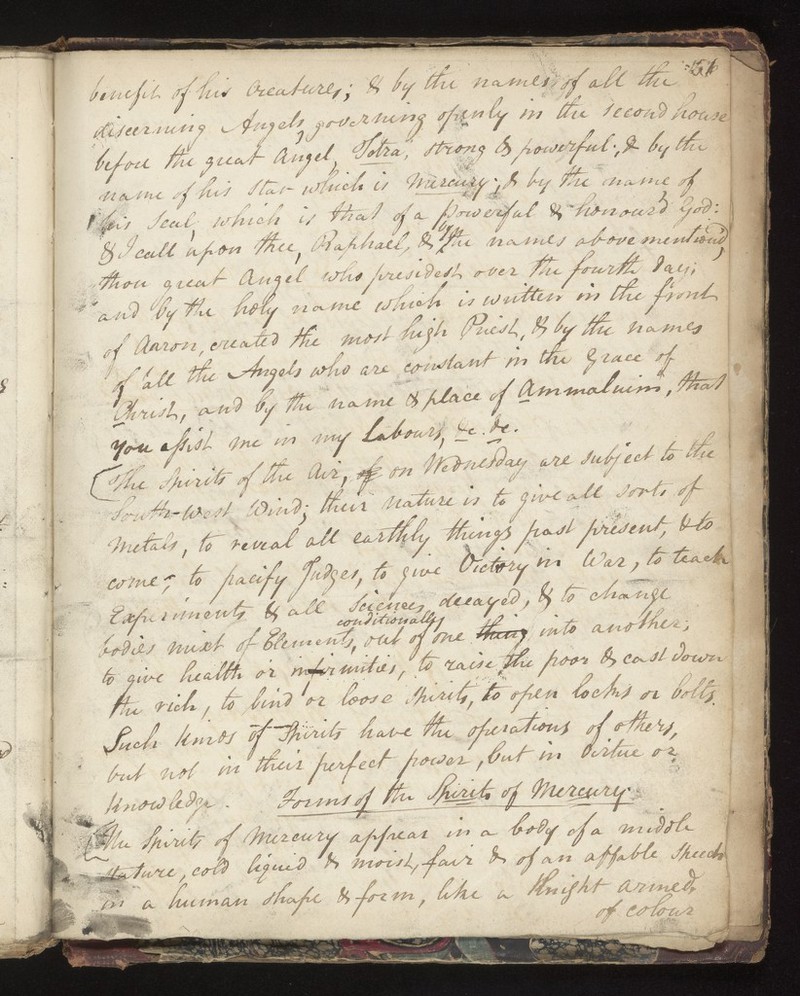 51
benefit of his Creatures; & by the names of all the
discerning Angels, governing openly in the second house
before the great Angel, Tetra, strong & powerful; & by the
name of his star which is Mercury; & by the name of
his Seal, which is that of a powerful & honour'd God:
& I call upon thee, Raphael, & by the names above mention'd,
thou great Angel who presidest over the fourth day;
and by the holy name which is written in the front
of Aaron, created the most high Priest, & by the names
of all the Angels who are constant in the Grace of
Christ, and by the name & place of Ammaluim, that
you assist me in my Labours, &c. &c.
The Spirits of the Air, of on Wednesday are subject to the
South-West Wind; their nature is to give all sorts of
Metals, to reveal all earthly things past present, & to
come; to pacify Judges, to give Victory in War, to teach
Experiments & all Sciences decayed, & to change
bodies mixt of Elements, conditionally out of one thing into another;
to give health or infirmities, to raise the poor & cast down
the rich, to bind or loose Spirits, to open locks or bolts.
Such kinds of Spirits have the operations of others,
but not in their perfect power, but in virtue or
knowledge. Forms of the Spirits of Mercury.
The Spirits of Mercury appear in a body of a middle
stature, cold liquid & moist, fair & of an affable Speech
in a human shape & form, like a Knight armed,
of colour